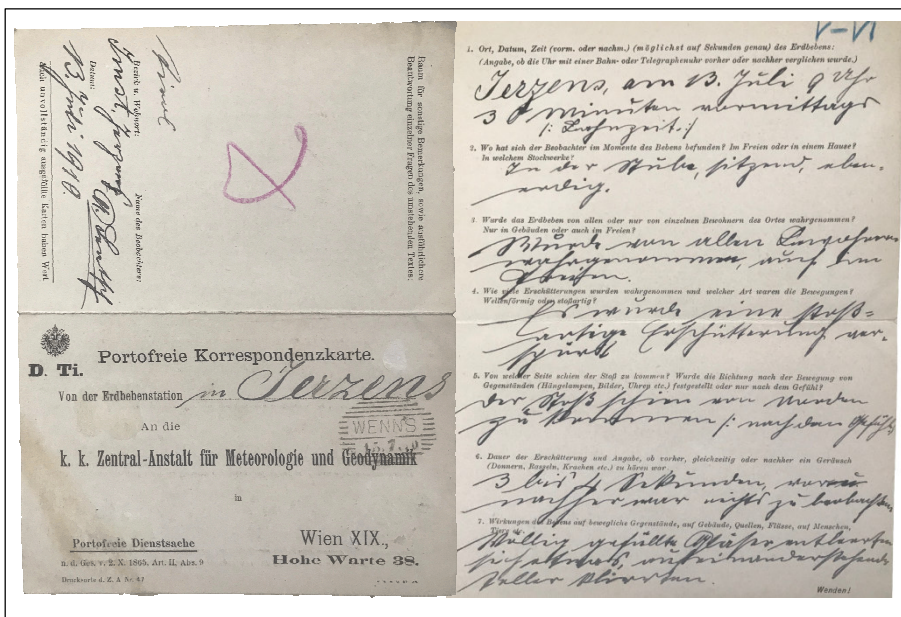 Raum für sonstige Bemerkungen, sowie ausführlichere
Beantwortung einzelner Fragen des umstehenden Textes:
Bezirk u. Wohnort:
Imst Jerzens
Name des Beobachters:
Datum:
13. Juli 1910.
Nicht unvollständig ausgefüllte Karten haben Wert
D. Ti.
Portofreie Korrespondenzkarte.
Von der Erdbebenstation in Jerzens
WENNS
An die
k. k. Zentral-Anstalt für Meteorologie und Geodynamik
in
Wien XIX.,
Hohe Warte 38.
Portofreie Dienstsache
n. d. Ges. v. 2. X. 1865, Art. II, Abs. 9
Drucksorte d. Z. A Nr. 47
V-VI
1. Ort, Datum, Zeit (vorm. oder nachm.) (möglichst auf Sekunden genau) des Erdbebens:
(Angabe, ob die Uhr mit einer Bahn- oder Telegraphenuhr vorher oder nachher verglichen wurde.)
Jerzens, am 13. Juli 9 Uhr
30 Minuten vormittags
/: Bahnzeit. :/
2. Wo hat sich der Beobachter im Momente des Bebens befunden? Im Freien oder in einem Hause?
In welchem Stockwerke?
In der Stube, sitzend, eben-
erdig.
3. Wurde das Erdbeben von allen oder nur von einzelnen Bewohnern des Ortes wahrgenommen?
Nur in Gebäuden oder auch im Freien?
Wurde von allen Bewohnern
wahrgenommen, auch im
Freien.
4. Wie viele Erschütterungen wurden wahrgenommen und welcher Art waren die Bewegungen?
Wellenförmig oder stoßartig?
Es wurde eine stoß-
artige Erschütterung ver-
spürt
5. Von welcher Seite schien der Stoß zu kommen? Wurde die Richtung nach der Bewegung von
Gegenständen (Hängelampen, Bilder, Uhren etc.) festgestellt oder nur nach dem Gefühl?
Der Stoß schien von Norden
zu kommen /: nach dem Gefühl
6. Dauer der Erschütterung und Angabe, ob vorher, gleichzeitig oder nachher ein Geräusch
(Donnern, Rasseln, Krachen etc.) zu hören war
3 bis 4 Sekunden,
nachher war nichts zu beobachten
7. Wirkungen des Bebens auf bewegliche Gegenstände, auf Gebäude, Quellen, Flüsse, auf Menschen,
Tiere etc.
Völlig gefüllte Gläser entleerten
sich etwas, aufeinanderstehende
Teller klirrten.
Wenden!